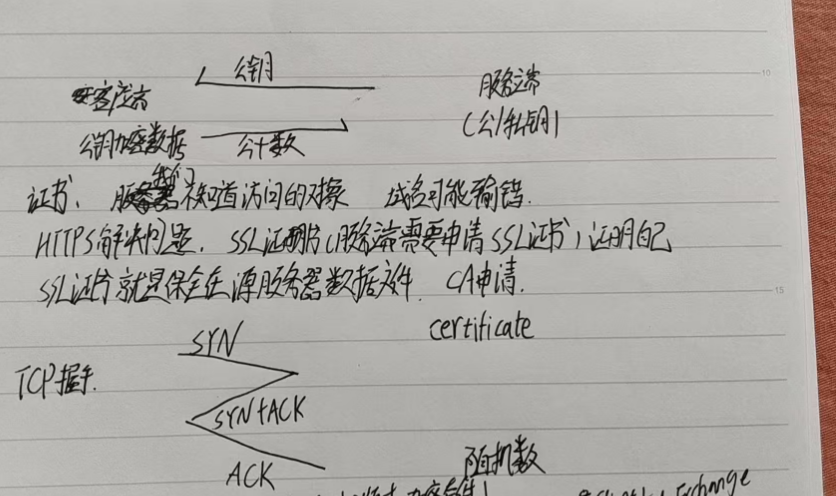 公钥
客户端 服务端
(公/私钥)
公钥加密数据 公+数
证书、我们不知道访问的对象 域名可能输错.
HTTPS解决问题. SSL证书(服务端需要申请SSL证书)证明自己
SSL证书就是保全在源服务器数据文件. CA申请.
certificate
SYN
TCP握手.
SYN+ACK
随机数
ACK
Exchange